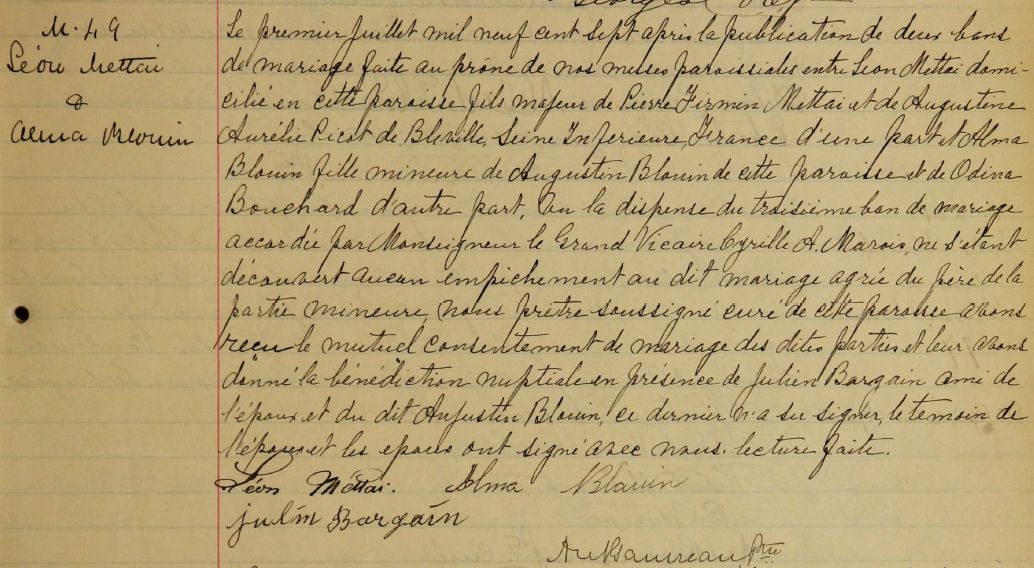 M. 49
Léon Mettai
&
Alma Blouin
Le premier juillet mil neuf cent sept après la publication de deux bans
de mariage faite au prône de nos messes paroissiales entre Léon Mettai domi-
cilié en cette paroisse fils majeur de Pierre Firmin Mettai et de Augustine
Aurélie Picot de Bléville, Seine Inferieure, France d'une part et Alma
Blouin fille mineure de Augustin Blouin de cette paroisse et de Odina
Bouchard d'autre part, Vu la dispense du troisième ban de mariage
accordée par Monseigneur le Grand Vicaire Cyrille A. Marois, ne s'étant
découvert aucun empêchement au dit mariage agrée du père de la
partie mineure, nous prêtre soussigné curé de cette paroisse avons
reçu le mutuel consentement de mariage des dites parties et leur avons
donné la bénédiction nuptiale en présence de Julien Bargain ami de
l'époux et du dit Augustin Blouin, ce dernier n'a su signer, le témoin de
l'époux et les epoux ont signé avec nous. lecture faite.
Léon Méttai. Alma Blouin
julin Bargain
Ptre